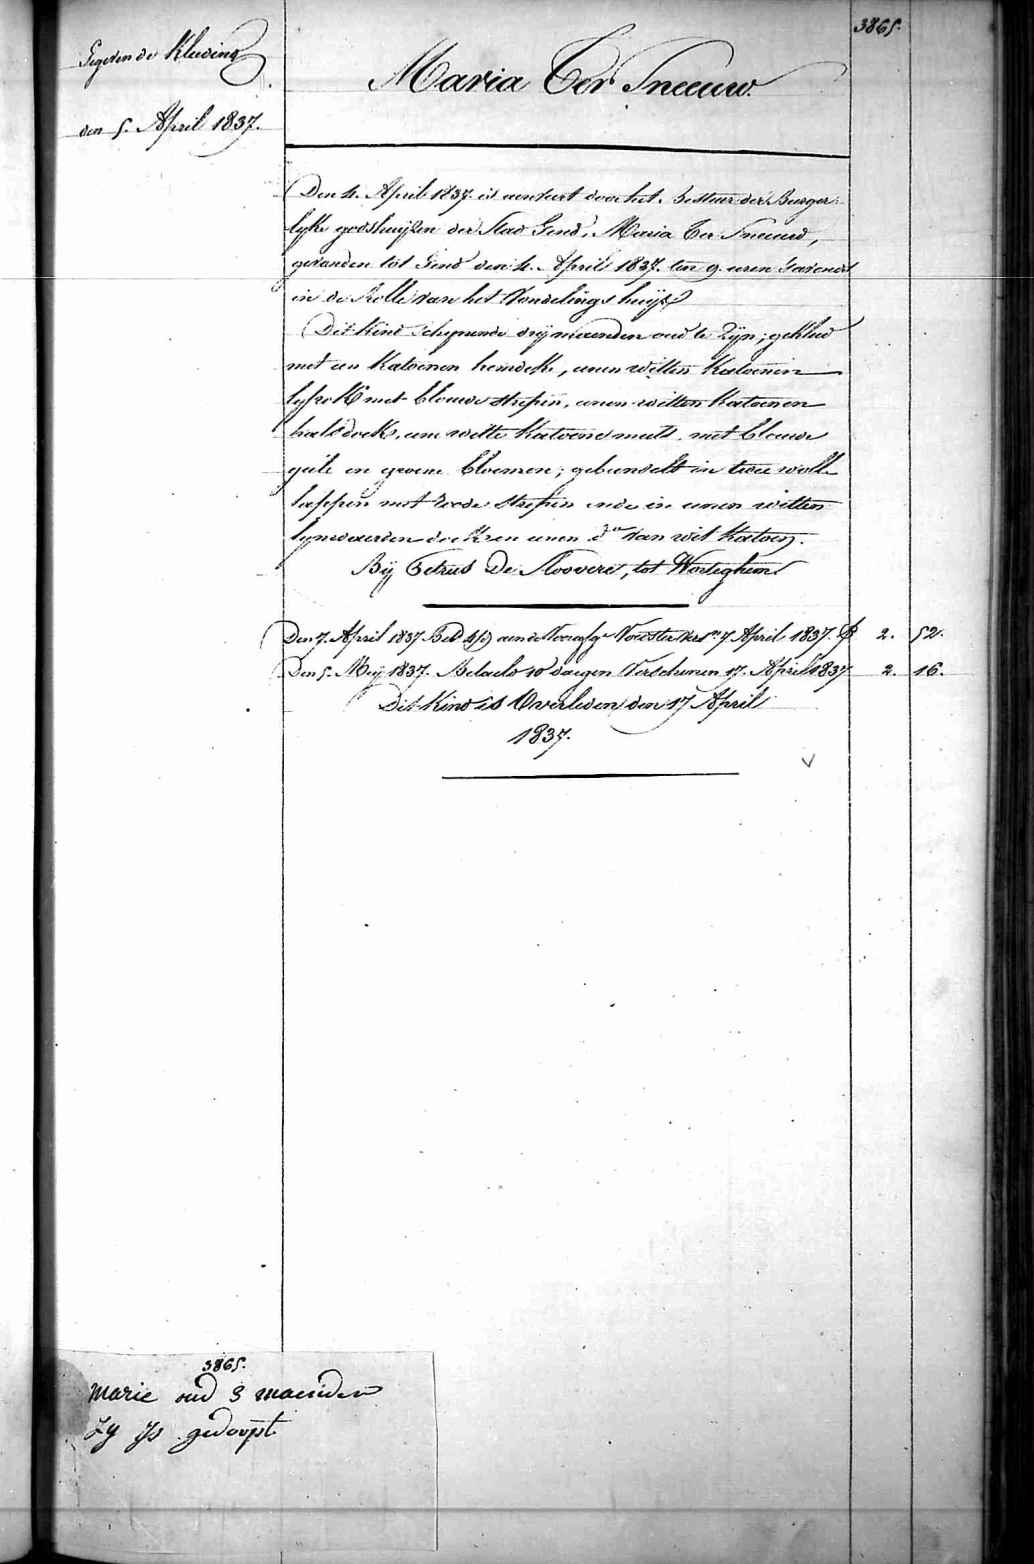 3865.
Gegeven de Kleeding
den 5. April 1837.
Maria Ter Sneeuw.
Den 4. April 1837. is aenveert door het Bestuer der Burger-
lyke godshuijsen der Stad Gend, Maria Ter Sneeuw,
gevonden tot Gend den 4. April 1837. ten 9. uren 's avonds
in de Rolle van het Vondelingshuijs
Dit Kind schynende drij maenden oud te zijn; gekleed
met een Katoenen hemdeke, eenen witten Katoenen
lyfrok met blouwe strepen, eenen witten Katoenen
halsdoek, eene witte Katoene muts met blouwe
geile en groene bloemen; gebundelt in twee wolle
lappen met roode strepen ende in eenen witten
lynwaerden doek en eenen do van wit Katoen.
Bij Petrus De Sloovere, tot Worteghem
Den 7. April 1837. Bet. aen de Voorsz. Voedster 7 April 1837. 2. 52.
Den 5. Meij 1837. Betaeld 10 daegen Verschenen 17. April 1837 2. 16.
Dit Kind is Overleden den 17 April
1837.
3865.
Marie oud 3 maenden
Zy ys gedoopt